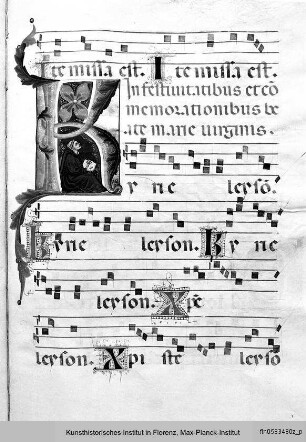 te missa est. Ite missa est.
In festiuitatibus et cō
memorationibus be
ate marie uirginis.
Kyrie leysō.
Kyrie leyson. Kyrie
leyson. Xpe
leyson. Xpiste leysō
Kunsthistorisches Institut in Florenz, Max-Planck-Institut